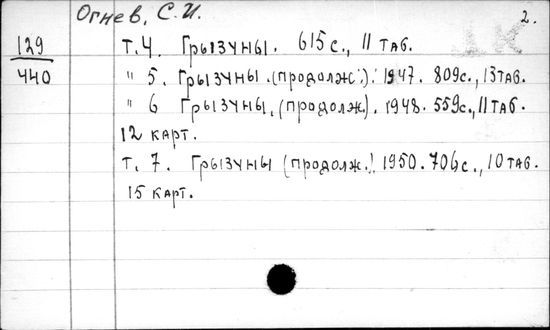 Огнев, С.И.
2.
129
440
т.4. Грызуны. 615с., 11 таб.
" 5. Грызуны.(продолж.). 1947. 809с., 13таб.
" 6 Грызуны.(продолж.). 1948. 559с., 11 таб.
12 карт.
т. 7. Грызуны (продолж.). 1950. 706с., 10 таб.
15 карт.